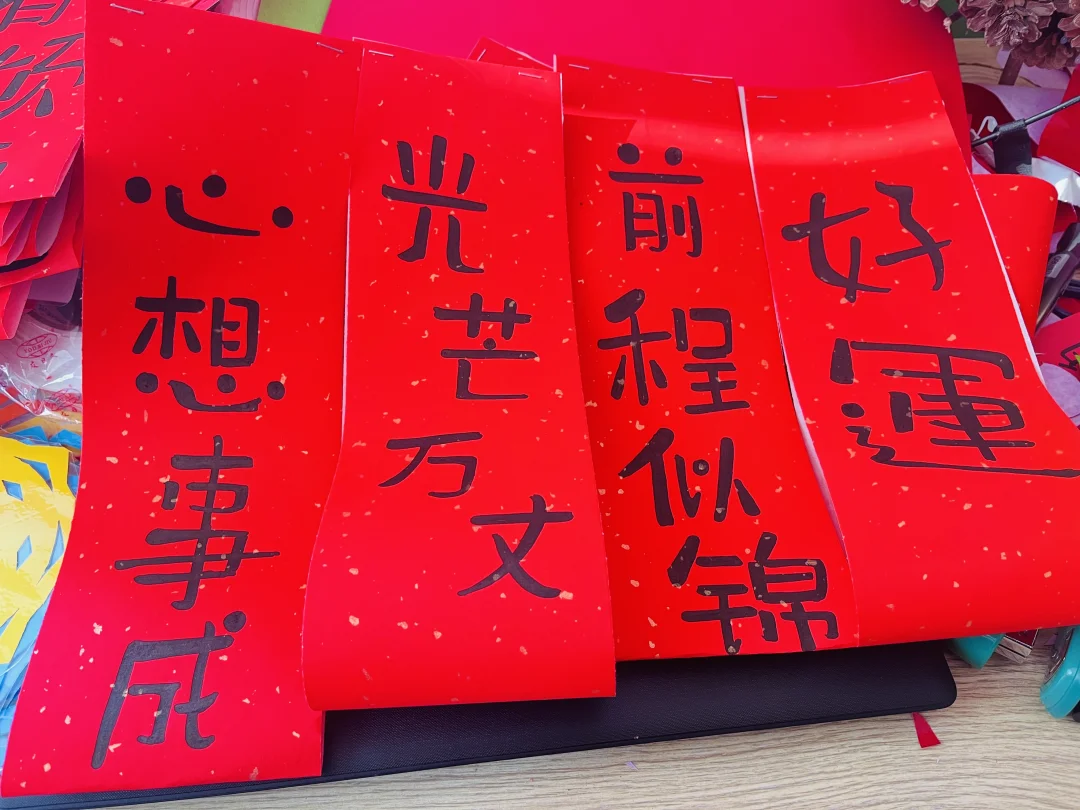 心想事成
光芒万丈
前程似锦
好運